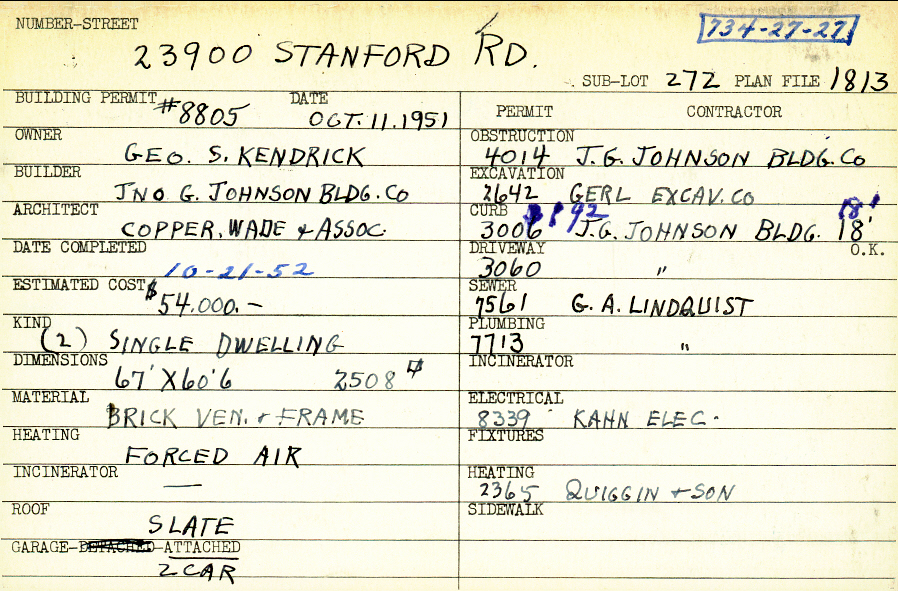 NUMBER-STREET
734-27-27
23900 STANFORD RD.
SUB-LOT 272 PLAN FILE 1813
BUILDING PERMIT #8805 DATE OCT. 11. 1951
OWNER
GEO. S. KENDRICK
BUILDER
JNO G. JOHNSON BLDG. Co
ARCHITECT
COPPER, WADE & ASSOC.
DATE COMPLETED
10-21-52
ESTIMATED COST $54,000.-
KIND
(2) SINGLE DWELLING
DIMENSIONS
67' X 60'6 2508
MATERIAL
BRICK VEN. & FRAME
HEATING
FORCED AIR
INCINERATOR
—
ROOF
SLATE
GARAGE-DETACHED-ATTACHED
2 CAR
PERMIT CONTRACTOR
OBSTRUCTION
4014 J. G. JOHNSON BLDG. Co
EXCAVATION
2642 GERL EXCAV. CO
CURB 92 18'
3006 J.G. JOHNSON BLDG. 18'
DRIVEWAY O.K.
3060 "
SEWER
7561 G. A. LINDQUIST
PLUMBING
7713 "
INCINERATOR
ELECTRICAL
8339 KAHN ELEC.
FIXTURES
HEATING
2365 QUIGGIN & SON
SIDEWALK